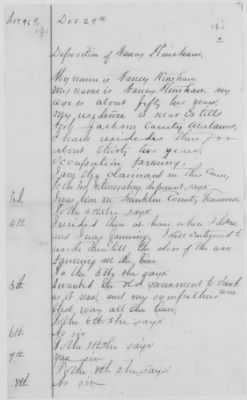 Dec 29th
2
Deposition of Nancy Hinshaw.
My name is Nancy Hinshaw.
My name is Nancy Hinshaw. My
age is about fifty two years.
My residence is near
Jackson County Alabama,
I have resided there for
about thirty two years,
occupation farming.
I am the claimant in this case,
To the 3rd Interrogatory deponent, says
3rd I was born in Franklin County, Tennessee
To the 4th she says
4th I resided then at home where I
and I was farming. I still continued to
reside there till the close of the war
farming all the time
To the 5th she says
5th I wanted the old government to stand
as it was, and my sympathies were
that way all the time,
To the 6th she says
6th No sir
To the 7th she says
7th Yes sir
To the 8th she says
8th No sir